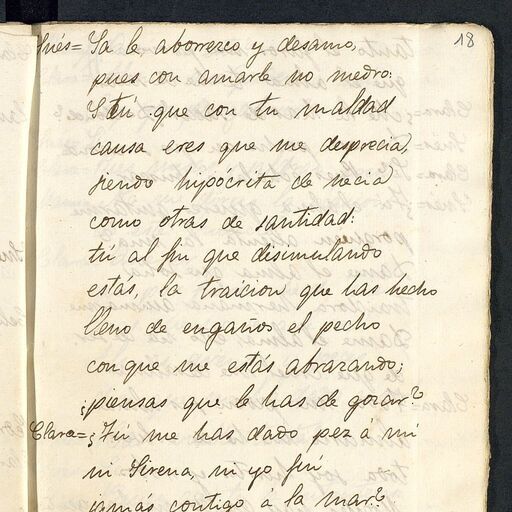 18
Inés= Ya le aborrezco y desamo,
pues con amarle no medro:
Y tú que con tu maldad
causa eres que me desprecia,
siendo hipócrita de necia
como otras de santidad:
tu al fin que disimulando
estas, la traicion que has hecho
lleno de engaños el pecho
con que me estás abrazando;
¿piensas que le has de gozar?
Clara= ¿Tú me has dado pez á mi
ni Sirena, ni yo fuí
jamás contigo á la mar?